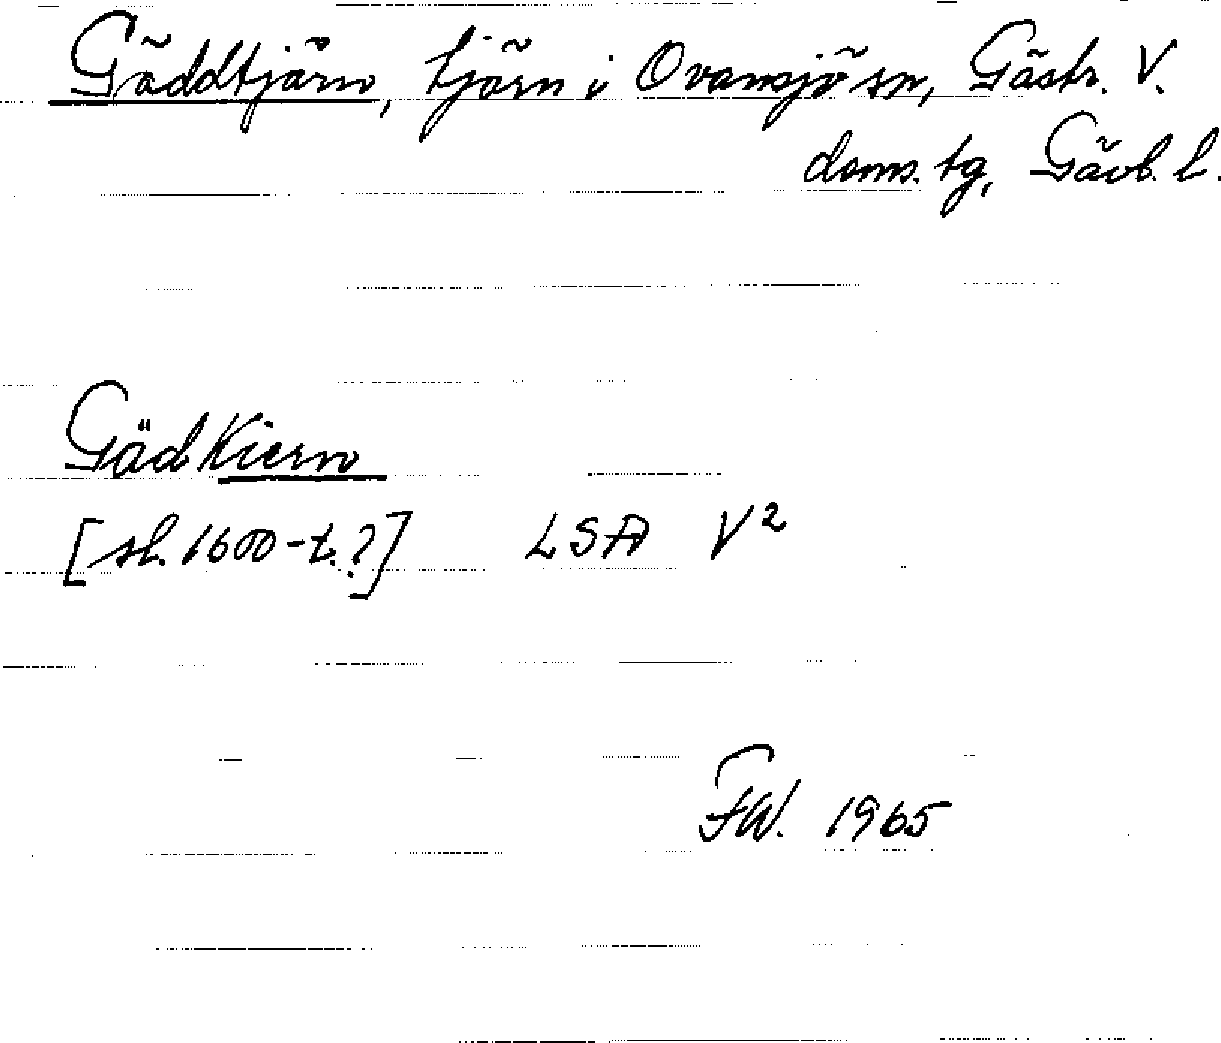 Gäddtjärn, tjärn i Ovansjö sn, Gästr. V.
doms. tg, Gävb. l.
GädKiern
[sl. 1600-t.?] LSA V²
FW. 1965